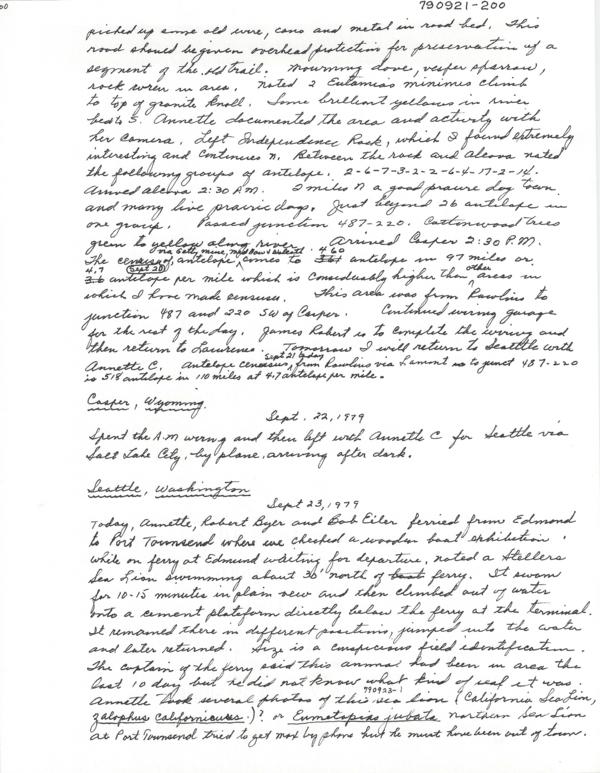 790921-200
picked up some old wire, cans and metal in road bed. This
road should be given overhead protection for preservation of a
segment of the old trail. Mourning dove, vesper sparrow,
rock wren in area. Noted 2 Eutamias minimus climb
to top of granite knoll. Some brilliant yellows in river
beds S. Annette documented the area and activity with
her camera. Left Independence Rock, which I found extremely
interesting and continued N. Between the rock and Alcova noted
the following groups of antelope. 2-6-7-3-2-2-6-4-17-2-14.
Arrived Alcova 2:30 P.M. 2 miles N a good prairie dog town
and many live prairie dogs. Just beyond 26 antelope in
one group. Passed junction 487-220. Cottonwood trees
green to yellow along river. Arrived Casper 2:30 P.M.
The census of antelope via comes to 460 antelope in 97 miles or
4.7 (Sept 20) antelope per mile which is considerably higher than other areas in
which I have made censuses. This area was from Rawlins to
junction 487 and 220 SW of Casper. Continued wiring garage
for the rest of the day. James Robert is to complete the wiring and
then return to Lawrence. Tomorrow I will return to Seattle with
Annette C. Antelope censuses Sept 21 today from Rawlins via Lamont to junct 487-220
is 518 antelope in 110 miles at 4.7 antelope per mile.
Casper, Wyoming.
Sept. 22, 1979
Spent the A.M wiring and then left with Annette C for Seattle via
Salt Lake City, by plane, arriving after dark.
Seattle, Washington
Sept 23, 1979
Today, Annette, Robert Byer and Bob Eiler ferried from Edmond
to Port Townsend where we checked a wooden boat exhibition.
While on ferry at Edmund waiting for departure, noted a Stellers
Sea Lion swimming about 30' north of boat ferry. It swam
for 10-15 minutes in plain view and then climbed out of water
onto a cement plateform directly below the ferry at the terminal.
It remained there in different positions, jumped into the water
and later returned. Size is a conspicuous field identification.
The captain of the ferry said this animal had been in area the
last 10 day but he did not know what kind of seal it was.
Annette took several photos of this sea lion 790923-1 (California Sea Lion,
Zalophus californicus.)? or Eumetopias jubata northern Sea Lion
at Port Townsend tried to get Max by phone but he must have been out of town.